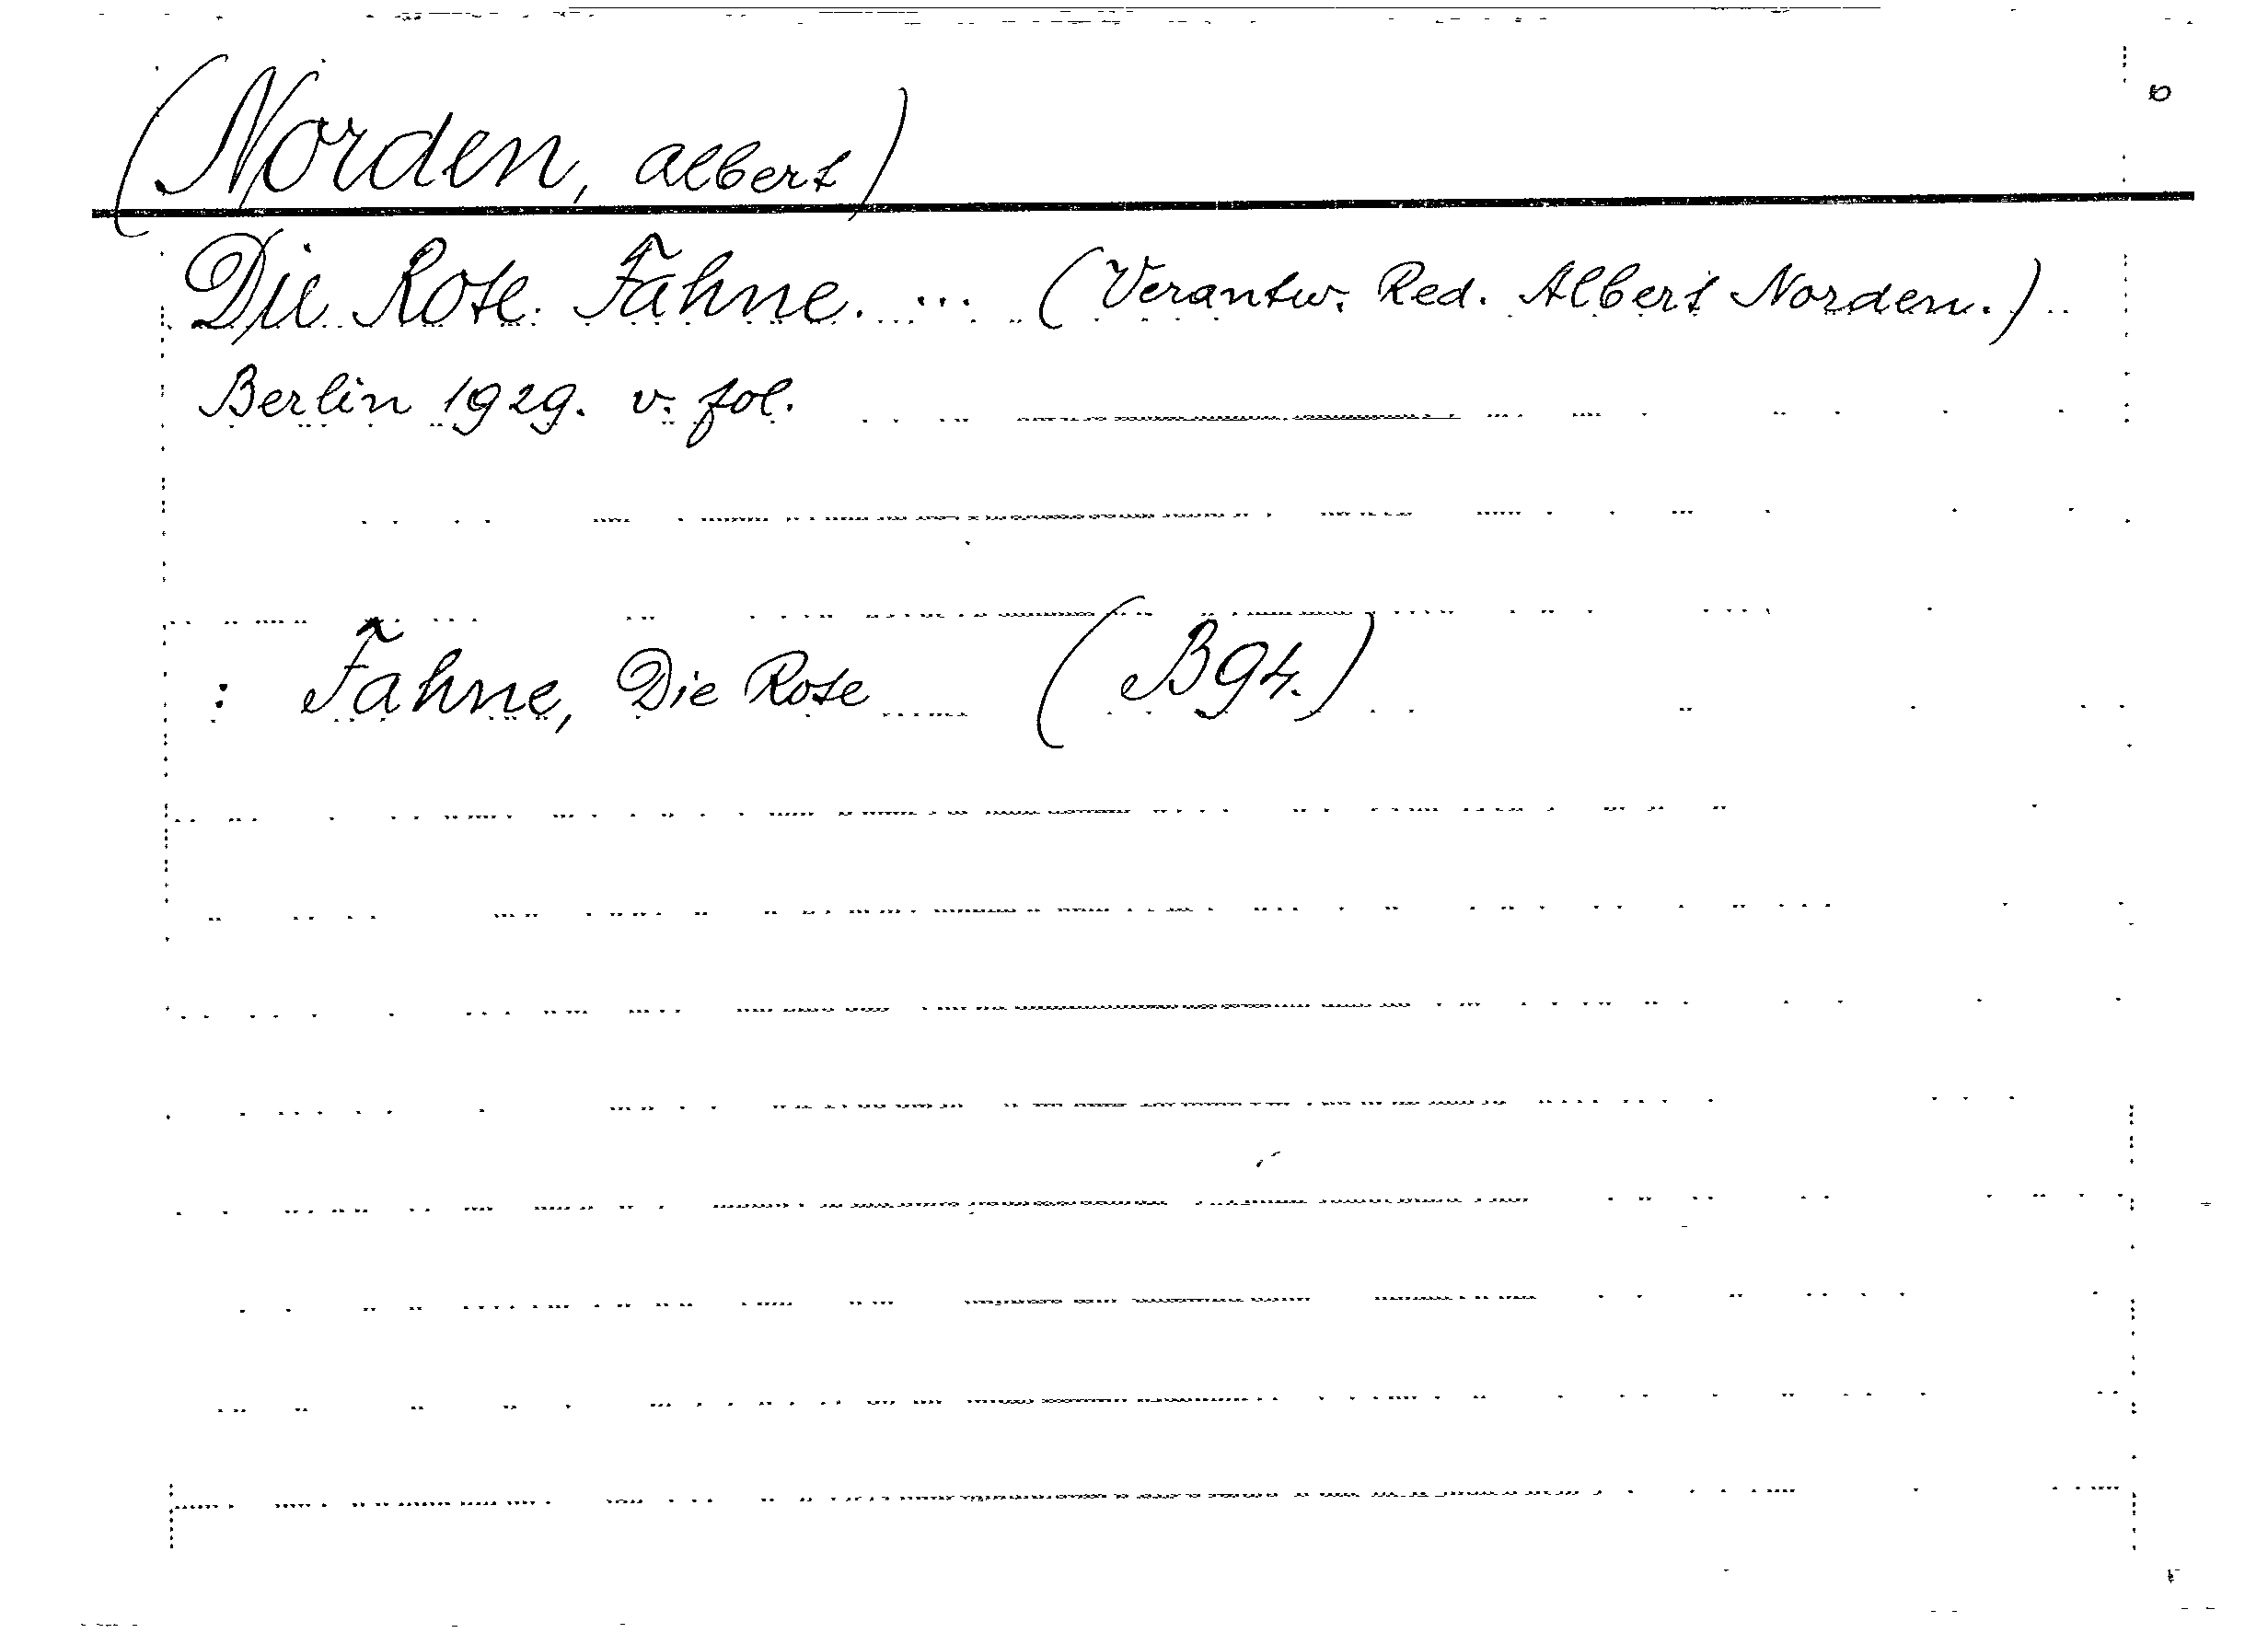 (Norden, Albert)
Die Rote Fahne. ... (Verantw. Red. Albert Norden.)
Berlin 1929. v. fol.
: Fahne, Die Rote (B94.)